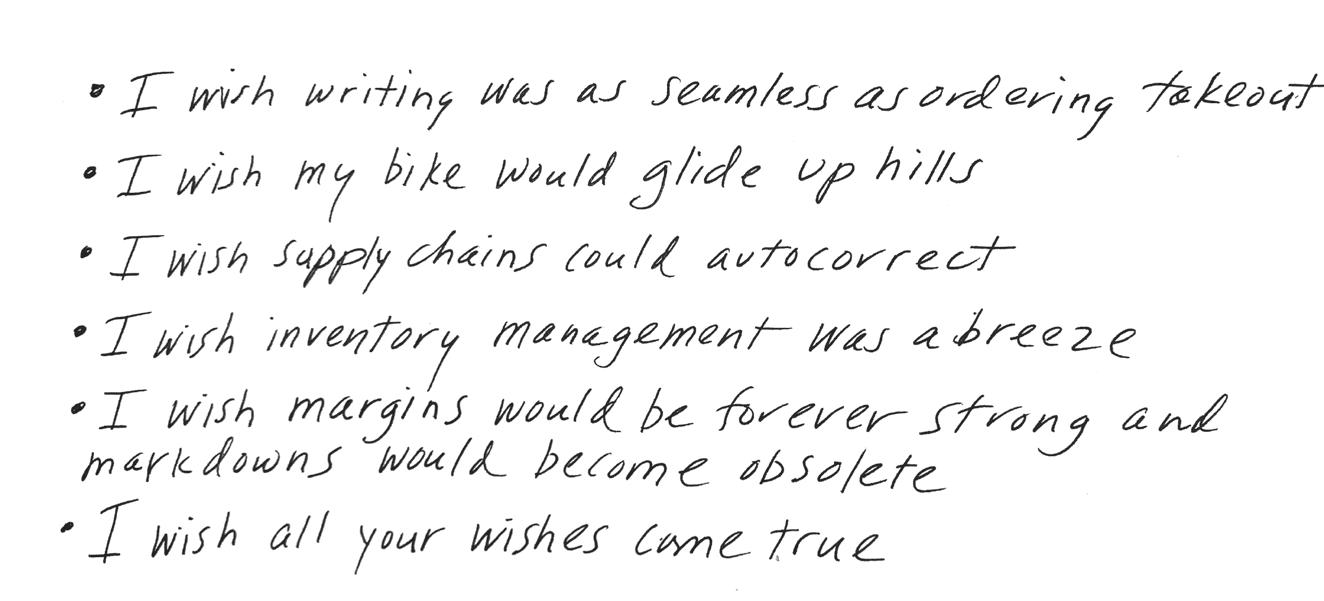 • I wish writing was as seamless as ordering takeout
• I wish my bike would glide up hills
• I wish supply chains could autocorrect
• I wish inventory management was a breeze
• I wish margins would be forever strong and
markdowns would become obsolete
• I wish all your wishes come true